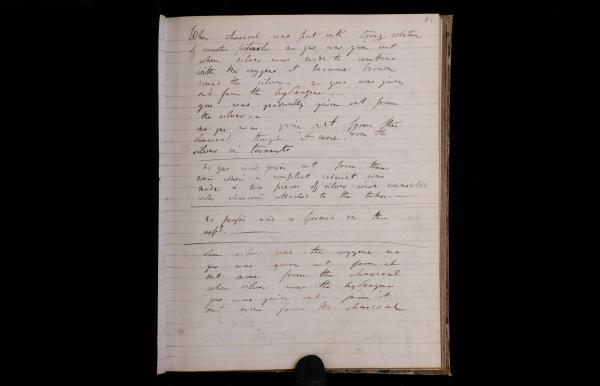 81
When charcoal was put into strong solution
of caustic potash no gas was given out
when silver was made to combine
with the oxygene it became brown
round the silver - no gas was given
out from the hydrogene. -
gas was gradually given out from
the silver. -
no gas was given out from the
charcoal though it came from the
silver in torrents
no gas was given out from them
even when a compleat circuit was
made & two pieces of silver were connected
with charcoal attached to the tubes. -
No prussic acid is formed in the
expt. -
when silver was the oxygene no
gas was given out from it
but none from the charcoal
when silver was the hydrogene
gas was given out from it
but none from the charcoal